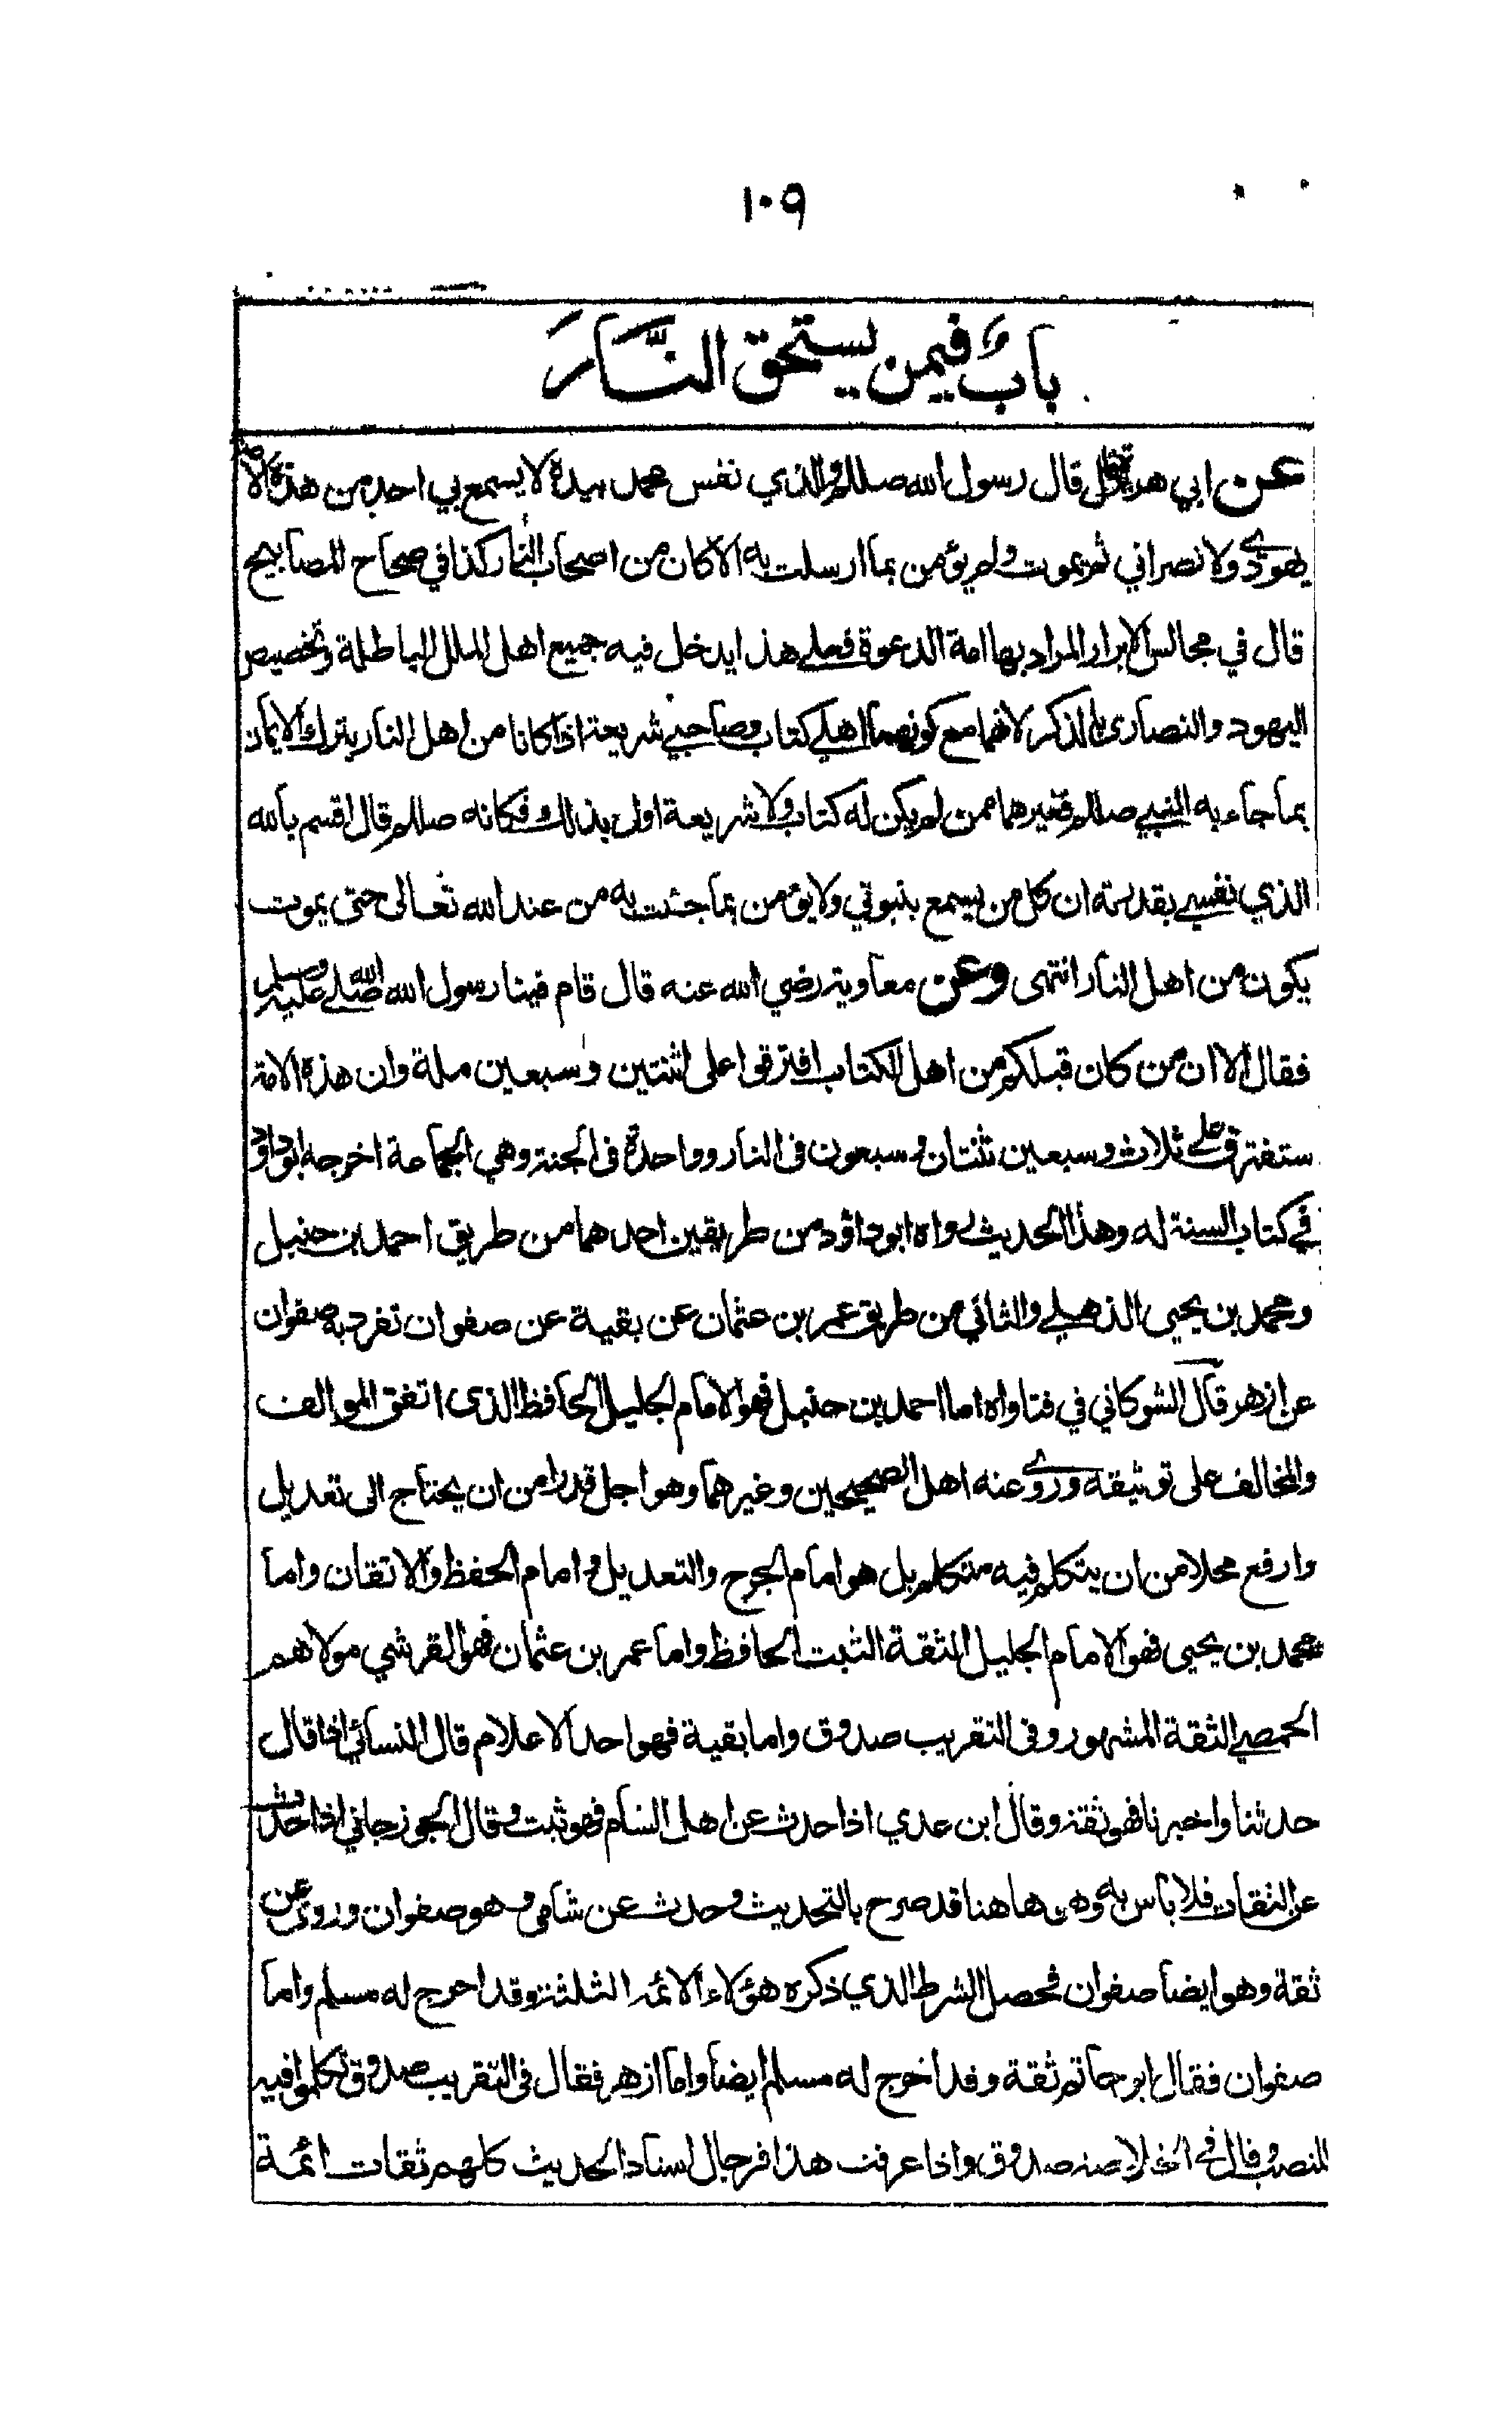 ١٠٩
باب فيمن يستحق النار
عن ابي هريرة قال قال رسول الله صللم والذي نفس محمد بيدة لا يسمع بي احد من هذه الامة
يهودي ولا نصراني ثم يموت ولم يؤمن بما ارسلت به الا كان من اصحاب النار كذا في صحاح المصابيح
قال في مجالس الابرار المراد بها امة الدعوة فعلى هذا يدخل فيه جميع اهل الملل الباطلة وتخصيص
اليهود والنصارى بالذكر لانهما مع كونهما اهلي كتاب وصاحبي شريعة اذا كانا من اهل النار بترك الايمان
بما جاء به النبي صللم فغيرهما ممن لم يكن له كتاب ولا شريعة اولى بذلك فكانه صللم قال اقسم بالله
الذي نفسي بقدرته ان كل من يسمع بنبوتي ولا يؤمن بما جئت به من عند الله تعالى حتى يموت
يكون من اهل النار انتهى وعن معاوية رضي الله عنه قال قام فينا رسول الله صلى الله عليه وسلم
فقال الا ان من كان قبلكم من اهل الكتاب افترقوا على اثنتين وسبعين ملة وان هذه الامة
ستفترق على ثلاث وسبعين ثنتان وسبعون فى النار وواحدة فى الجنة وهي الجماعة اخرجه ابو داود
في كتاب السنة له وهذا الحديث رواه ابو داؤد من طريقين احدهما من طريق احمد بن حنبل
ومحمد بن يحيى الذهلي والثاني من طريق عمر بن عثمان عن بقية عن صفوان تفرد به صفوان
عن ازهر قال الشوكاني في فتاواه اما احمد بن حنبل فهو الامام الجليل الحافظ الذى اتفق الموالف
والمخالف على توثيقه وروى عنه اهل الصحيحين وغيرهما وهو اجل قدرا من ان يحتاج الى تعديل
وارفع محلا من ان يتكلم فيه متكلم بل هو امام الجرح والتعديل وامام الحفظ والاتقان واما
محمد بن يحيى فهو الامام الجليل الثقة الثبت الحافظ واما عمر بن عثمان فهو القرشي مولاهم
الحمصي الثقة المشهور وفى التقريب صدوق واما بقية فهو احد الاعلام قال النسائي اذا قال
حدثنا واخبرنا فهو ثقة وقال ابن عدي اذا حدث عن اهل الشام فهو ثبت وقال الجوزجاني اذا حدث
عن الثقات فلا باس به وهو هاهنا قد صرح بالتحديث وحدث عن شامي وهو صفوان وروى عن
ثقة وهو ايضا صفوان فحصل الشرط الذي ذكره هؤلاء الائمة الثلثة وقد اخرج له مسلم واما
صفوان فقال ابو حاتم ثقة وقد اخرج له مسلم ايضا واما ازهر فقال فى التقريب صدوق تكلموا فيه
للنصب وقال في الخلاصة صدوق واذا عرفت هذا فرجال اسناد الحديث كلهم ثقات ائمة